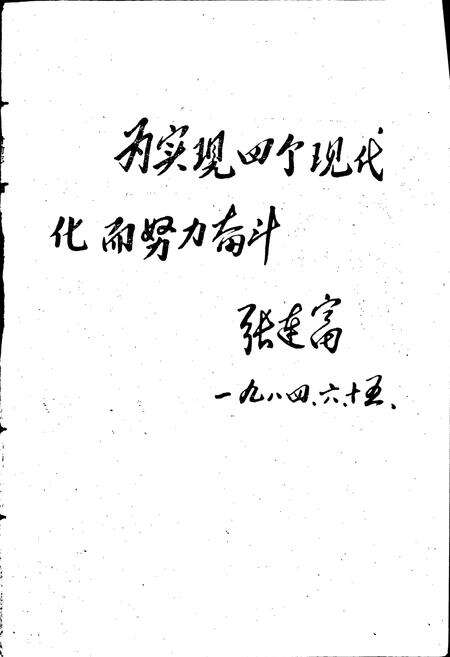 为实现四个现代
化而努力奋斗
张连富
一九八四、六、十五、